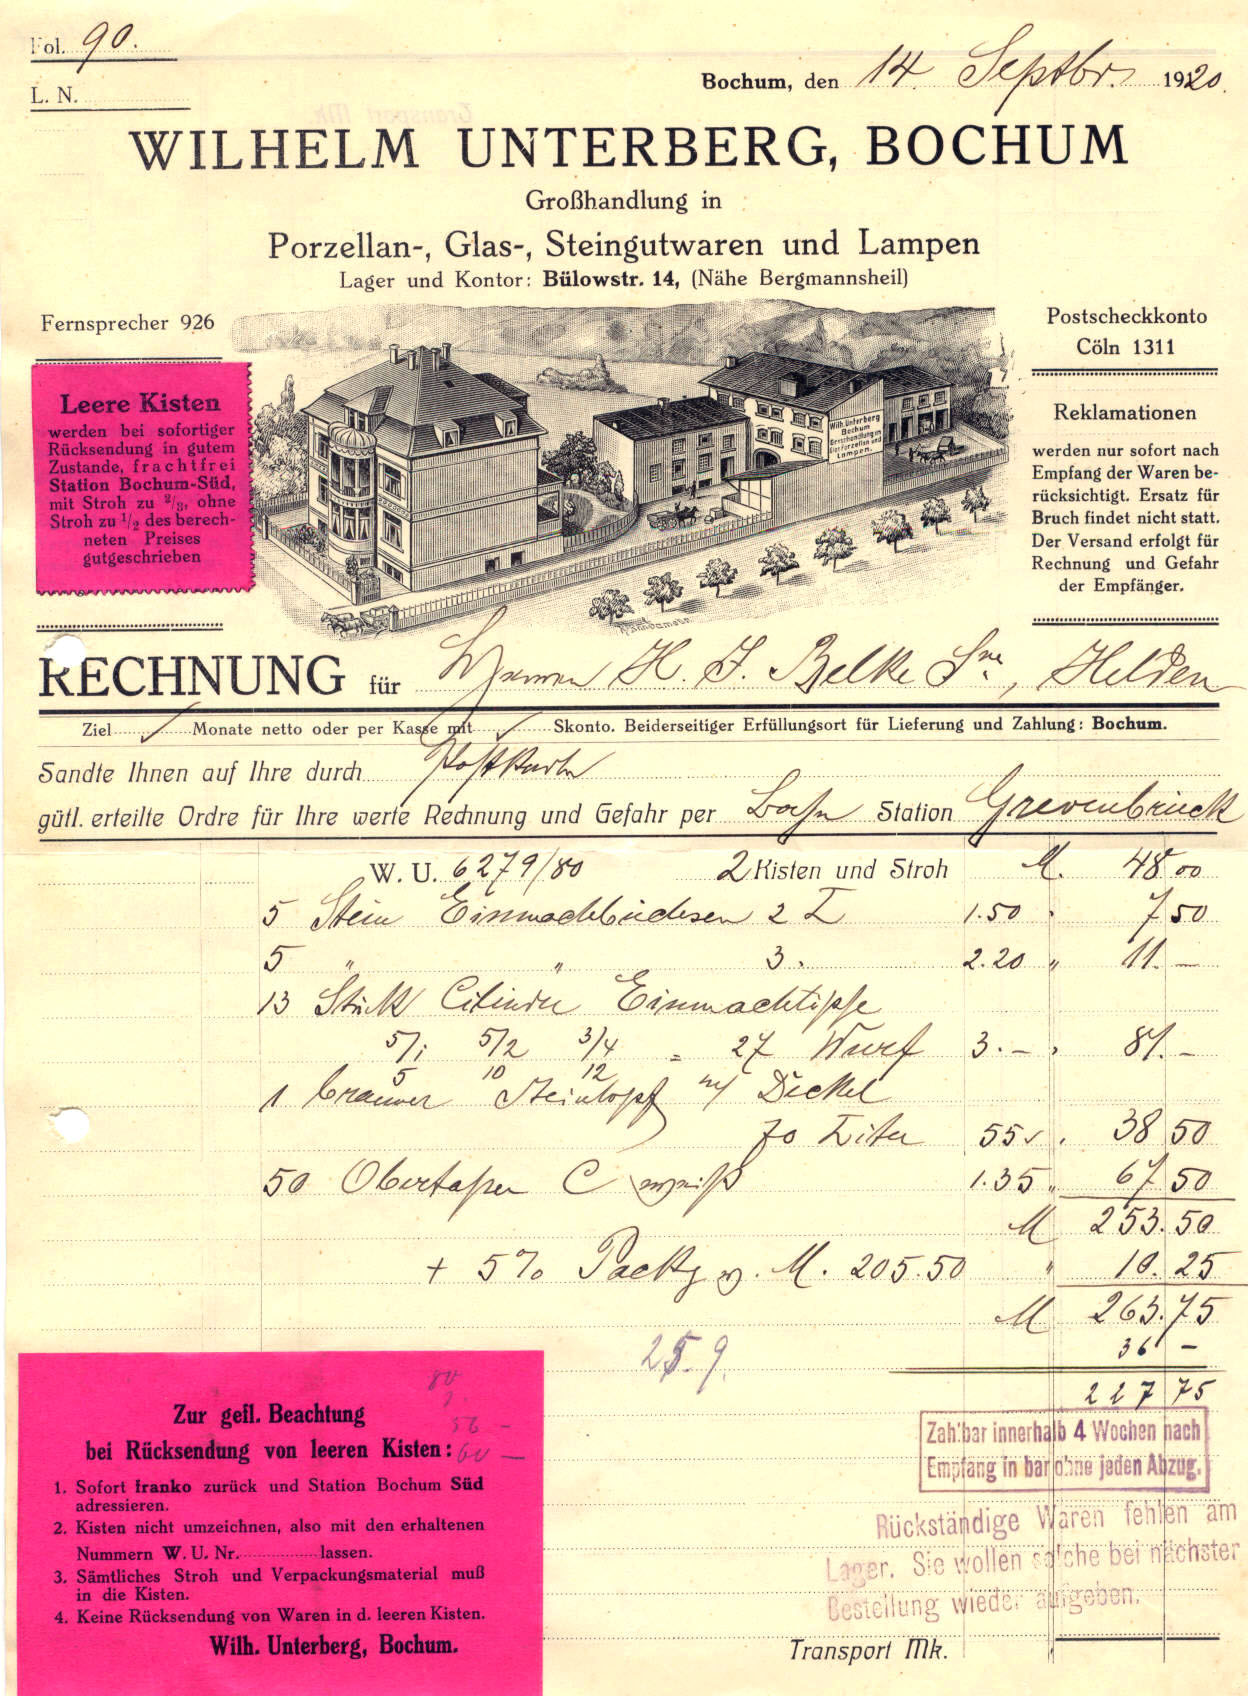 Fol. 90.
L. N.
Bochum, den 14. Septbr. 1920.
WILHELM UNTERBERG, BOCHUM
Großhandlung in
Porzellan-, Glas-, Steingutwaren und Lampen
Lager und Kontor: Bülowstr. 14, (Nähe Bergmannsheil)
Fernsprecher 926
Leere Kisten
werden bei sofortiger
Rücksendung in gutem
Zustande, frachtfrei
Station Bochum-Süd,
mit Stroh zu 2/3, ohne
Stroh zu 1/2 des berech-
neten Preises
gutgeschrieben
Wilh. Unterberg
Bochum
Grosshandlung in
Glas Porzellan und
Lampen.
Postscheckkonto
Cöln 1311
Reklamationen
werden nur sofort nach
Empfang der Waren be-
rücksichtigt. Ersatz für
Bruch findet nicht statt.
Der Versand erfolgt für
Rechnung und Gefahr
der Empfänger.
RECHNUNG für Herrn H. J. Belke Sne, Helden
Ziel Monate netto oder per Kasse mit Skonto. Beiderseitiger Erfüllungsort für Lieferung und Zahlung: Bochum.
Sandte Ihnen auf Ihre durch Postkarte
gütl. erteilte Ordre für Ihre werte Rechnung und Gefahr per Bahn Station Grevenbrück
W. U. 6279/80 2 Kisten und Stroh M. 48.00
5 Stein Einmachbüchsen 2 L 1.50 " 7 50
5 " " 3 " 2.20 " 11. –
13 Stück Cilinder Einmachtöpfe
5/1 5/2 3/4 = 27 Wurf 3. – " 81. –
5 10 12
1 brauner Steintopf m/ Deckel
70 Liter 55 " 38 50
50 Obertassen C weiß 1.35 " 67 50
M 253.50
+ 5% Packg v. M. 205.50 " 10.25
M 263.75
36 –
227 75
25.9.
Zahlbar innerhalb 4 Wochen nach
Empfang in bar ohne jeden Abzug.
Rückständige Waren fehlen am
Lager. Sie wollen solche bei nächster
Bestellung wieder aufgeben.
Zur gefl. Beachtung
bei Rücksendung von leeren Kisten:
1. Sofort franko zurück und Station Bochum Süd
adressieren.
2. Kisten nicht umzeichnen, also mit den erhaltenen
Nummern W. U. Nr. lassen.
3. Sämtliches Stroh und Verpackungsmaterial muß
in die Kisten.
4. Keine Rücksendung von Waren in d. leeren Kisten.
Wilh. Unterberg, Bochum.
Transport Mk.